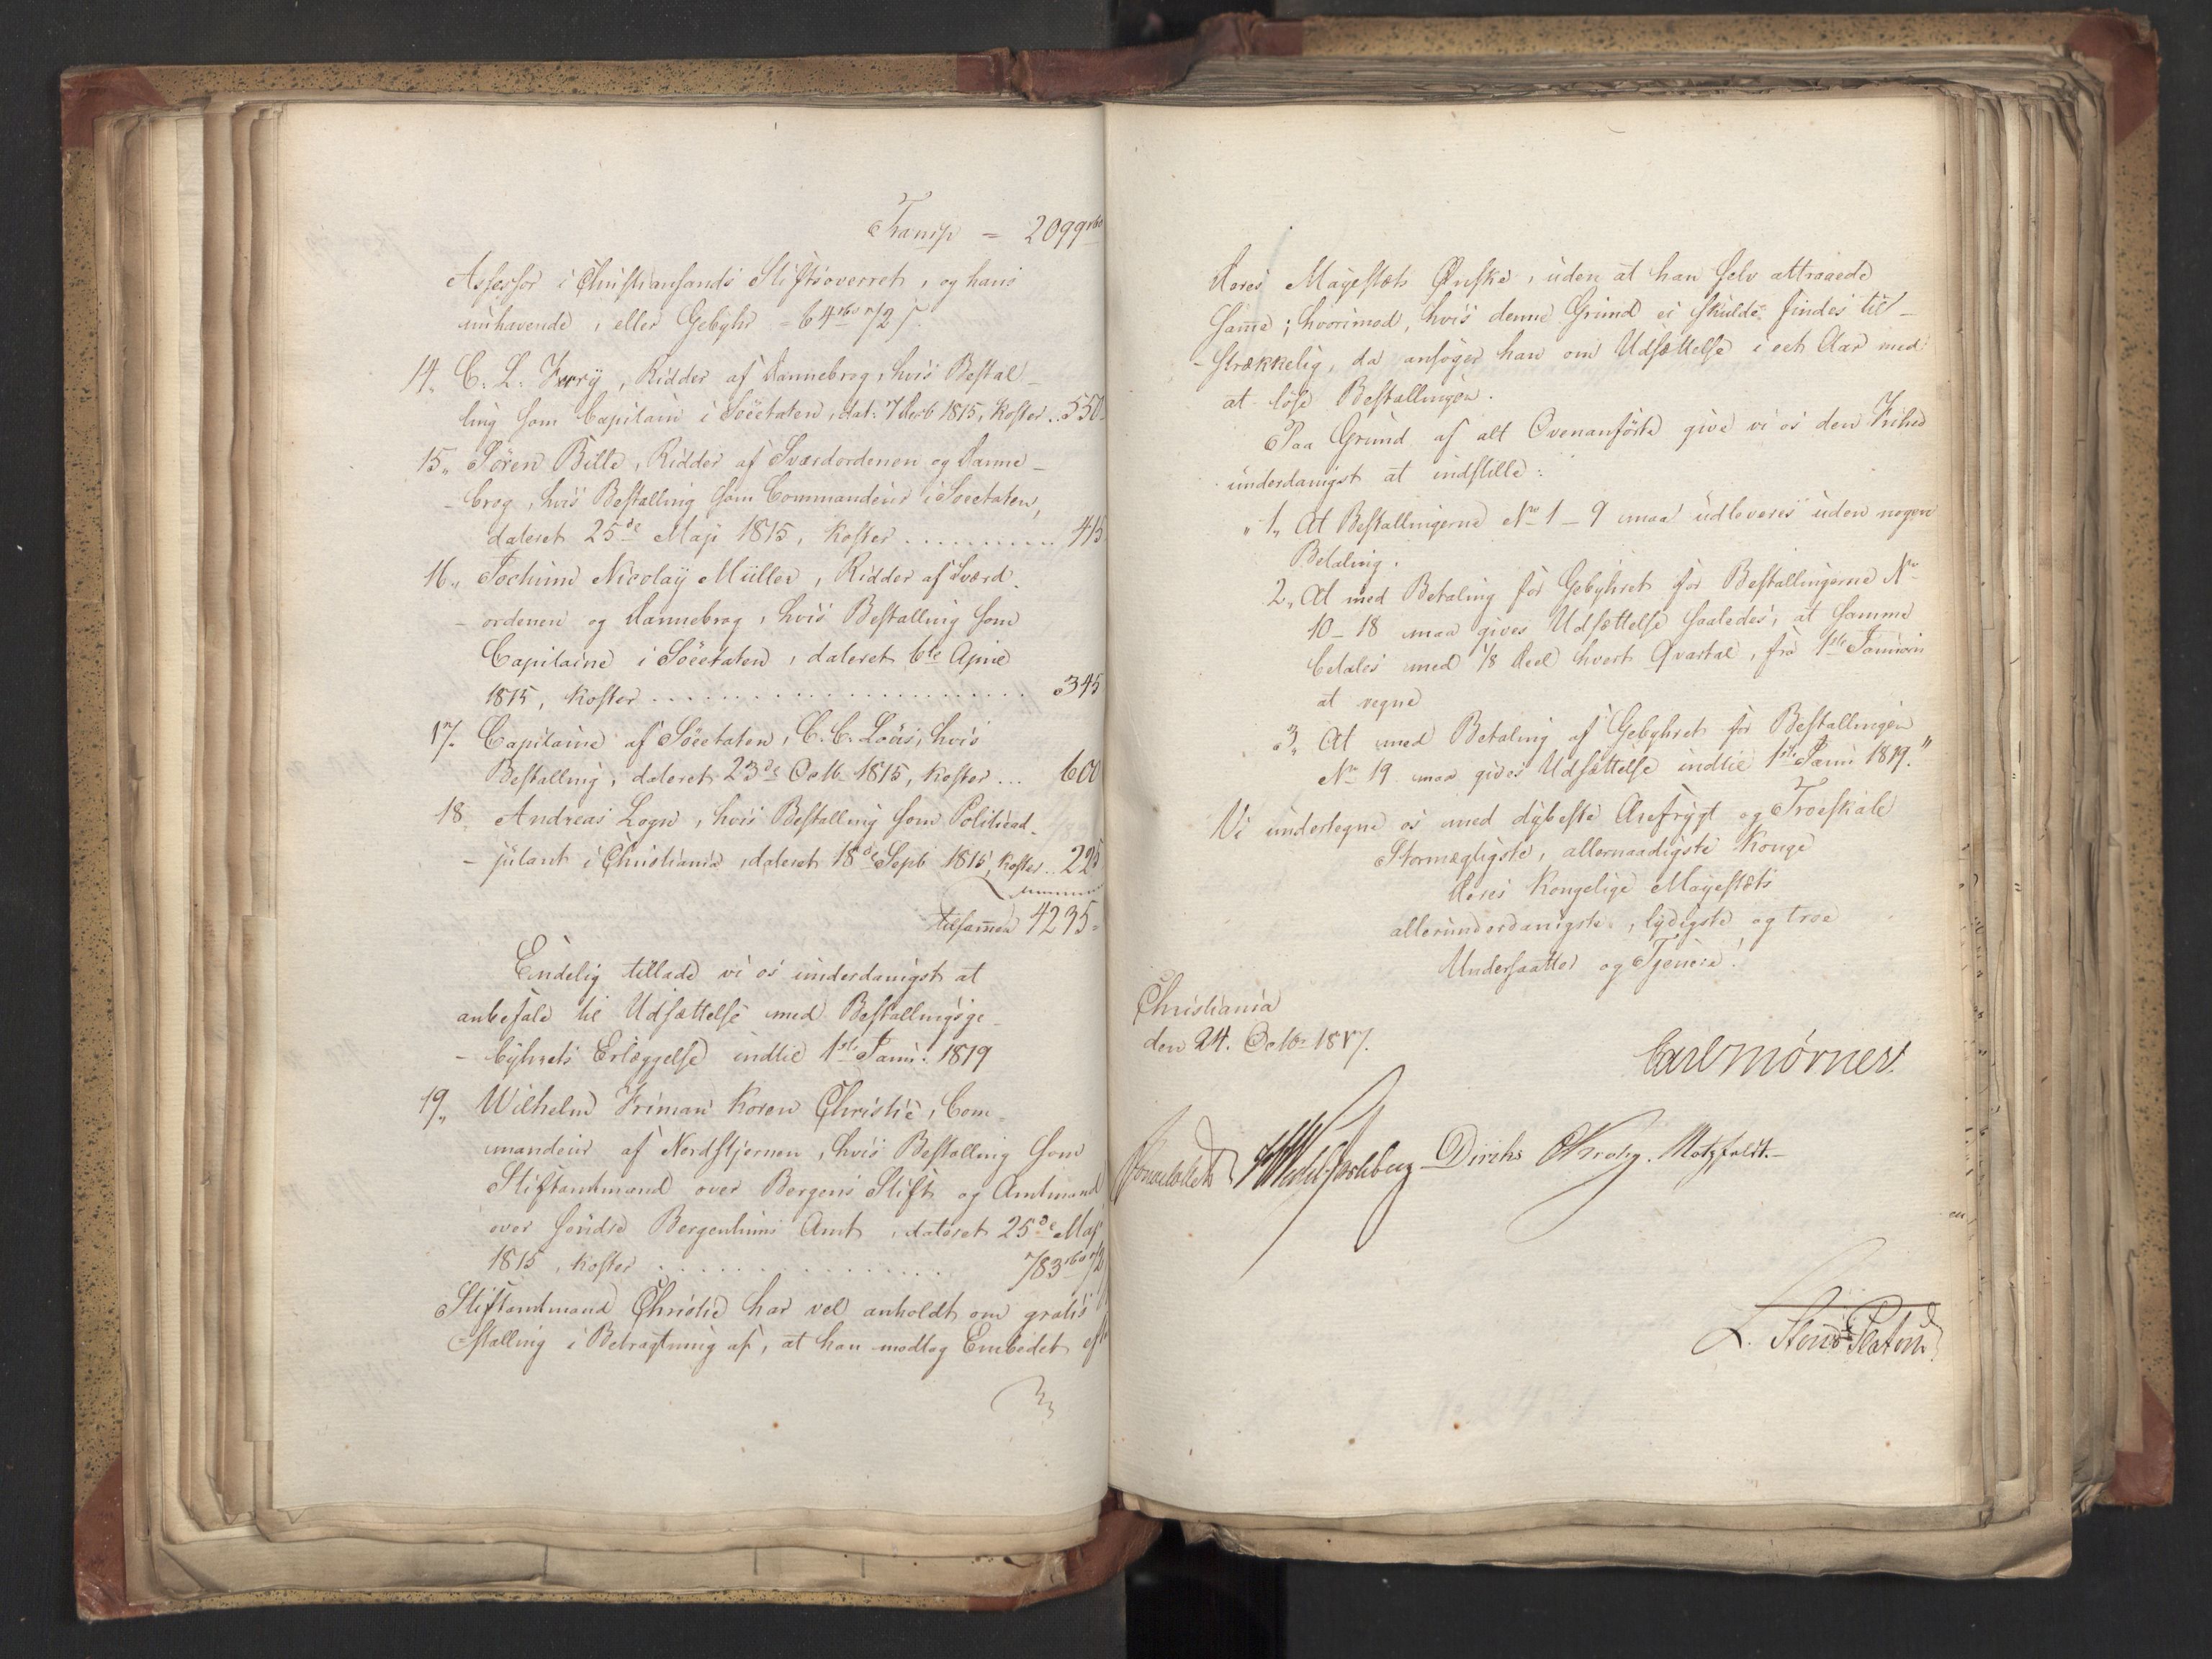 Transp = 2099 rbd
Assessor i Christiansands Stiftsoverret, og hans
uinhavende, eller Gebyhr = 64 rbd 72 s
14. C. L. Krog, Ridder af Dannebrog, hvis Bestal-
ling som Capitain i Söeetaten, dat: 7 Decb 1815, koster.. 550
15,, Sören Bille, Ridder af Sværdordenen og Danne-
-brog, hvis Bestalling som Commandeur i Söeetaten,
dateret 25de Maji 1815, koster .......... 415
16,, Jochum Nicolaÿ Müller, Ridder af Sværd-
-ordenen og Dannebrog, hvis Bestalling som
Capitaine i Söeetaten, dateret 6te April
1815, koster ...................... 345
17. Capitaine af Söeetaten, C. C. Lous, hvis
Bestalling, dateret 23de Octb 1815, koster ... 600
18. Andreas Logn, hvis Bestalling som Politiead-
-jutant i Christiania, dateret 18de Septb 1815, koster.. 225
tilsammen 4235.
Endelig tillade vi os underdanigst at
anbefale til Udsættelse med Bestallingsge-
-byhrets Erlæggelse indtil 1ste Janu: 1819
19,, Wilhelm Friman Koren Christie, Com-
mandeur af Nordstjernen, hvis Bestalling som
Stiftamtmand over Bergens Stift og Amtmand
over söndre Bergenhuus Amt, dateret 25de Maj
1815, koster ................ 783 rbd 72
Stiftamtmand Christie har vel anholdt om gratis
-stalling i Betragtning af, at han modtog Embedet eft
Deres Majestæts Ønske, uden at han selv attraaede
samme; hvorimod, hvis denne Grund ei skulde findes til-
-strækkelig, da ansøger han om Udsættelse i eet Aar med
at löse Bestallingen.
Paa Grund af alt Ovenanförte give vi os den Frihed
underdanigst at indstille:
"1,, At Bestallingerne No 1-9 maa udleveres uden nogen
Betaling.
2,, At med Betaling for Gebyhret for Bestallingerne No
10-18 maa gives Udsættelse saaledes, at samme
betales med 1/8 Deel hvert Qvartal, fra 1ste Januarii
at regne
3,, At med Betaling af Gebyhret for Bestallingen
No 19 maa gives Udsættelse indtil 1ste Janu 1819."
Vi undertegne os med dybeste Ærefrygt og Troeskab
Stormægtigste, allernaadigste Konge
Deres Kongelige Majestæts
allerunderdanigste, lydigste og troe
Undersaatter og Tjenere!
Christiania
den 24. Octbr 1817.
Carl Mörner.
Sommerhielm HWedel Jarlsberg Diriks CKrohg. Motzfeldt.
L. Stoud Platou